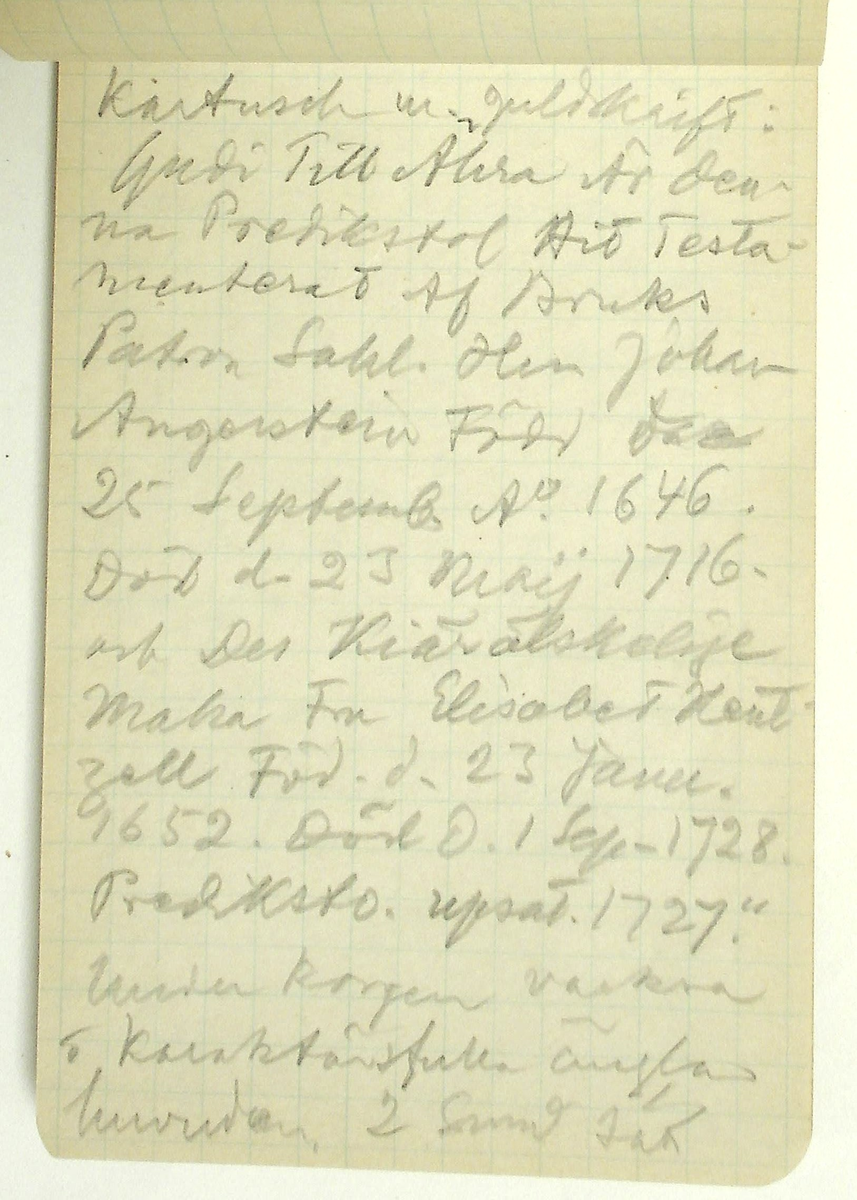 Kartusch m. guldskrift:
Gudi Till Ähra Är den-
na Predikstol Hit Testa-
menterat Af Bruks
Patron Sahl. Her Johan
Angerstein Född den
25 Septemb. Aº. 1646.
Död d. 23 Maij 1716.
och Des Kiärälskelige
Maka Fru Elisabet Hent-
zell Föd. d. 23 Janu.
1652. Död D. 1 Sep. 1728.
Prediksto. upsat. 1727."
Under korgen vackra
o karaktärsfulla ängla
huvuden. 2